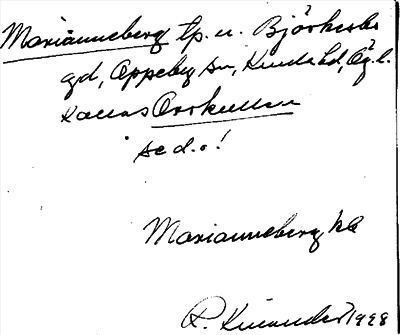 Marianneberg lp. u. Björkesbo
gd, Oppeby sn, Kinda hd, Ög. l.
Kallas Orrkullen
se d.o!
Marianneberg
R. Kinander 1928